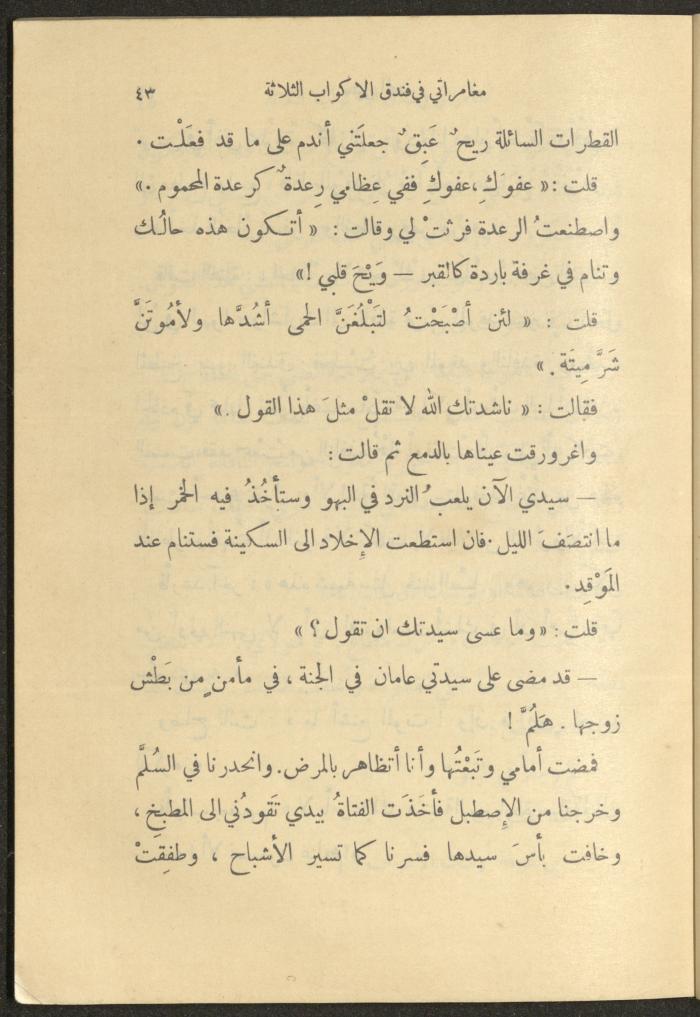 مغامراتي في فندق الاكواب الثلاثة ٤٣
القطرات السائلة ريحٌ عَبِقٌ جعلَتني أندم على ما قد فعَلْت .
قلت : « عفوَكِ ، عفوكِ ففي عِظامي رِعدةٌ كرعدة المحموم . »
واصطنعتُ الرعدة فرثتْ لي وقالت : « أتكون هذه حالُك
وتنام في غرفة باردة كالقبر — وَيْحَ قلبي ! »
قلت : « لئن أصْبَحْتُ لتَبْلُغَنَّ الحمى أشُدَّها ولأمُوتَنَّ
شَرَّ مِيتَة . »
فقالت : « ناشدتك الله لا تقلْ مثلَ هذا القول . »
واغرورقت عيناها بالدمع ثم قالت :
— سيدي الآن يلعبُ النرد في البهو وستأخُذُ فيه الخمر إذا
ما انتصَفَ الليل . فان استطعت الإخلاد الى السكينة فستنام عند
المَوْقِد .
قلت : « وما عسى سيدتك ان تقول ؟ »
— قد مضى على سيدتي عامان في الجنة ، في مأمنٍ من بَطْش
زوجها . هَلُمَّ !
فمضت أمامي وتَبَعْتُها وأنا أتظاهر بالمرض . وانحدرنا في السُلَّم
وخرجنا من الإصطبل فأخَذَت الفتاةُ بيدي تَقودُني الى المطبخ ،
وخافت بأسَ سيدها فسرنا كما تسير الأشباح ، وطفِقتْ